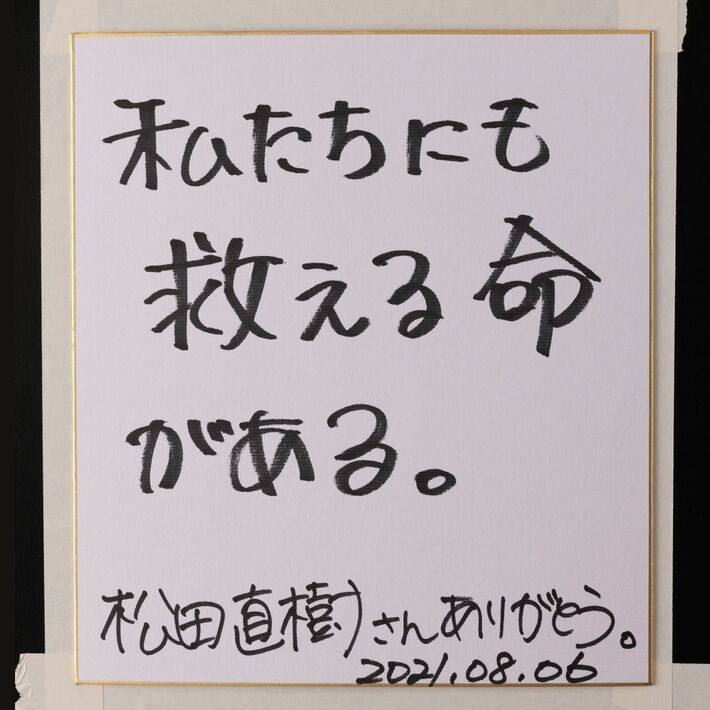 私たちにも
救える命
がある。
松田直樹さんありがとう。
2021.08.06